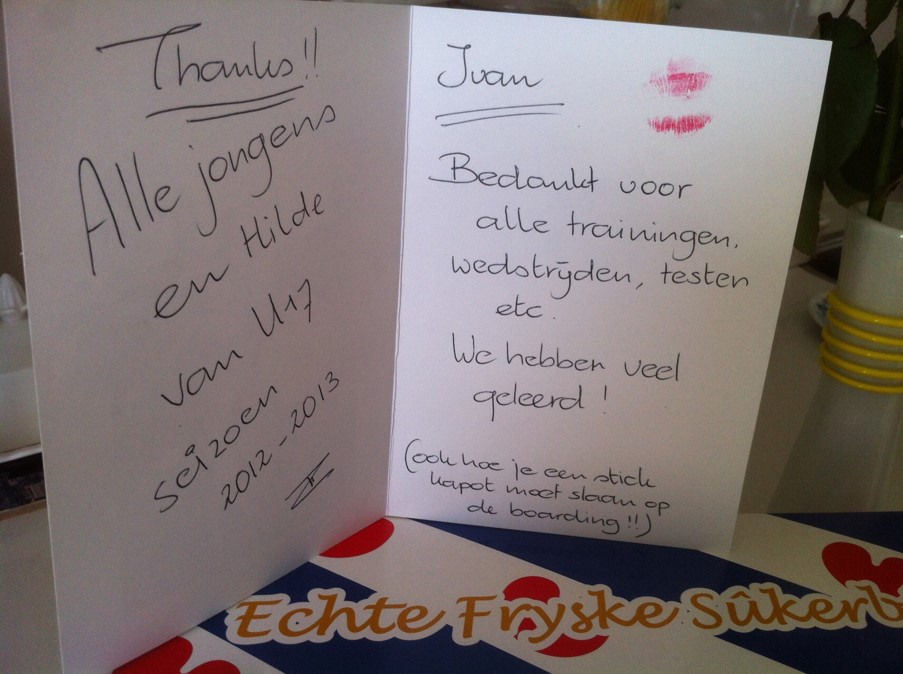 Thanks!!
Alle jongens
en Hilde
van U17
seizoen
2012-2013
Ivan
Bedankt voor
alle trainingen,
wedstrijden, testen
etc.
We hebben veel
geleerd!
(ook hoe je een stick
kapot moet slaan op
de boarding!!)
Echte Fryske Sûkerb